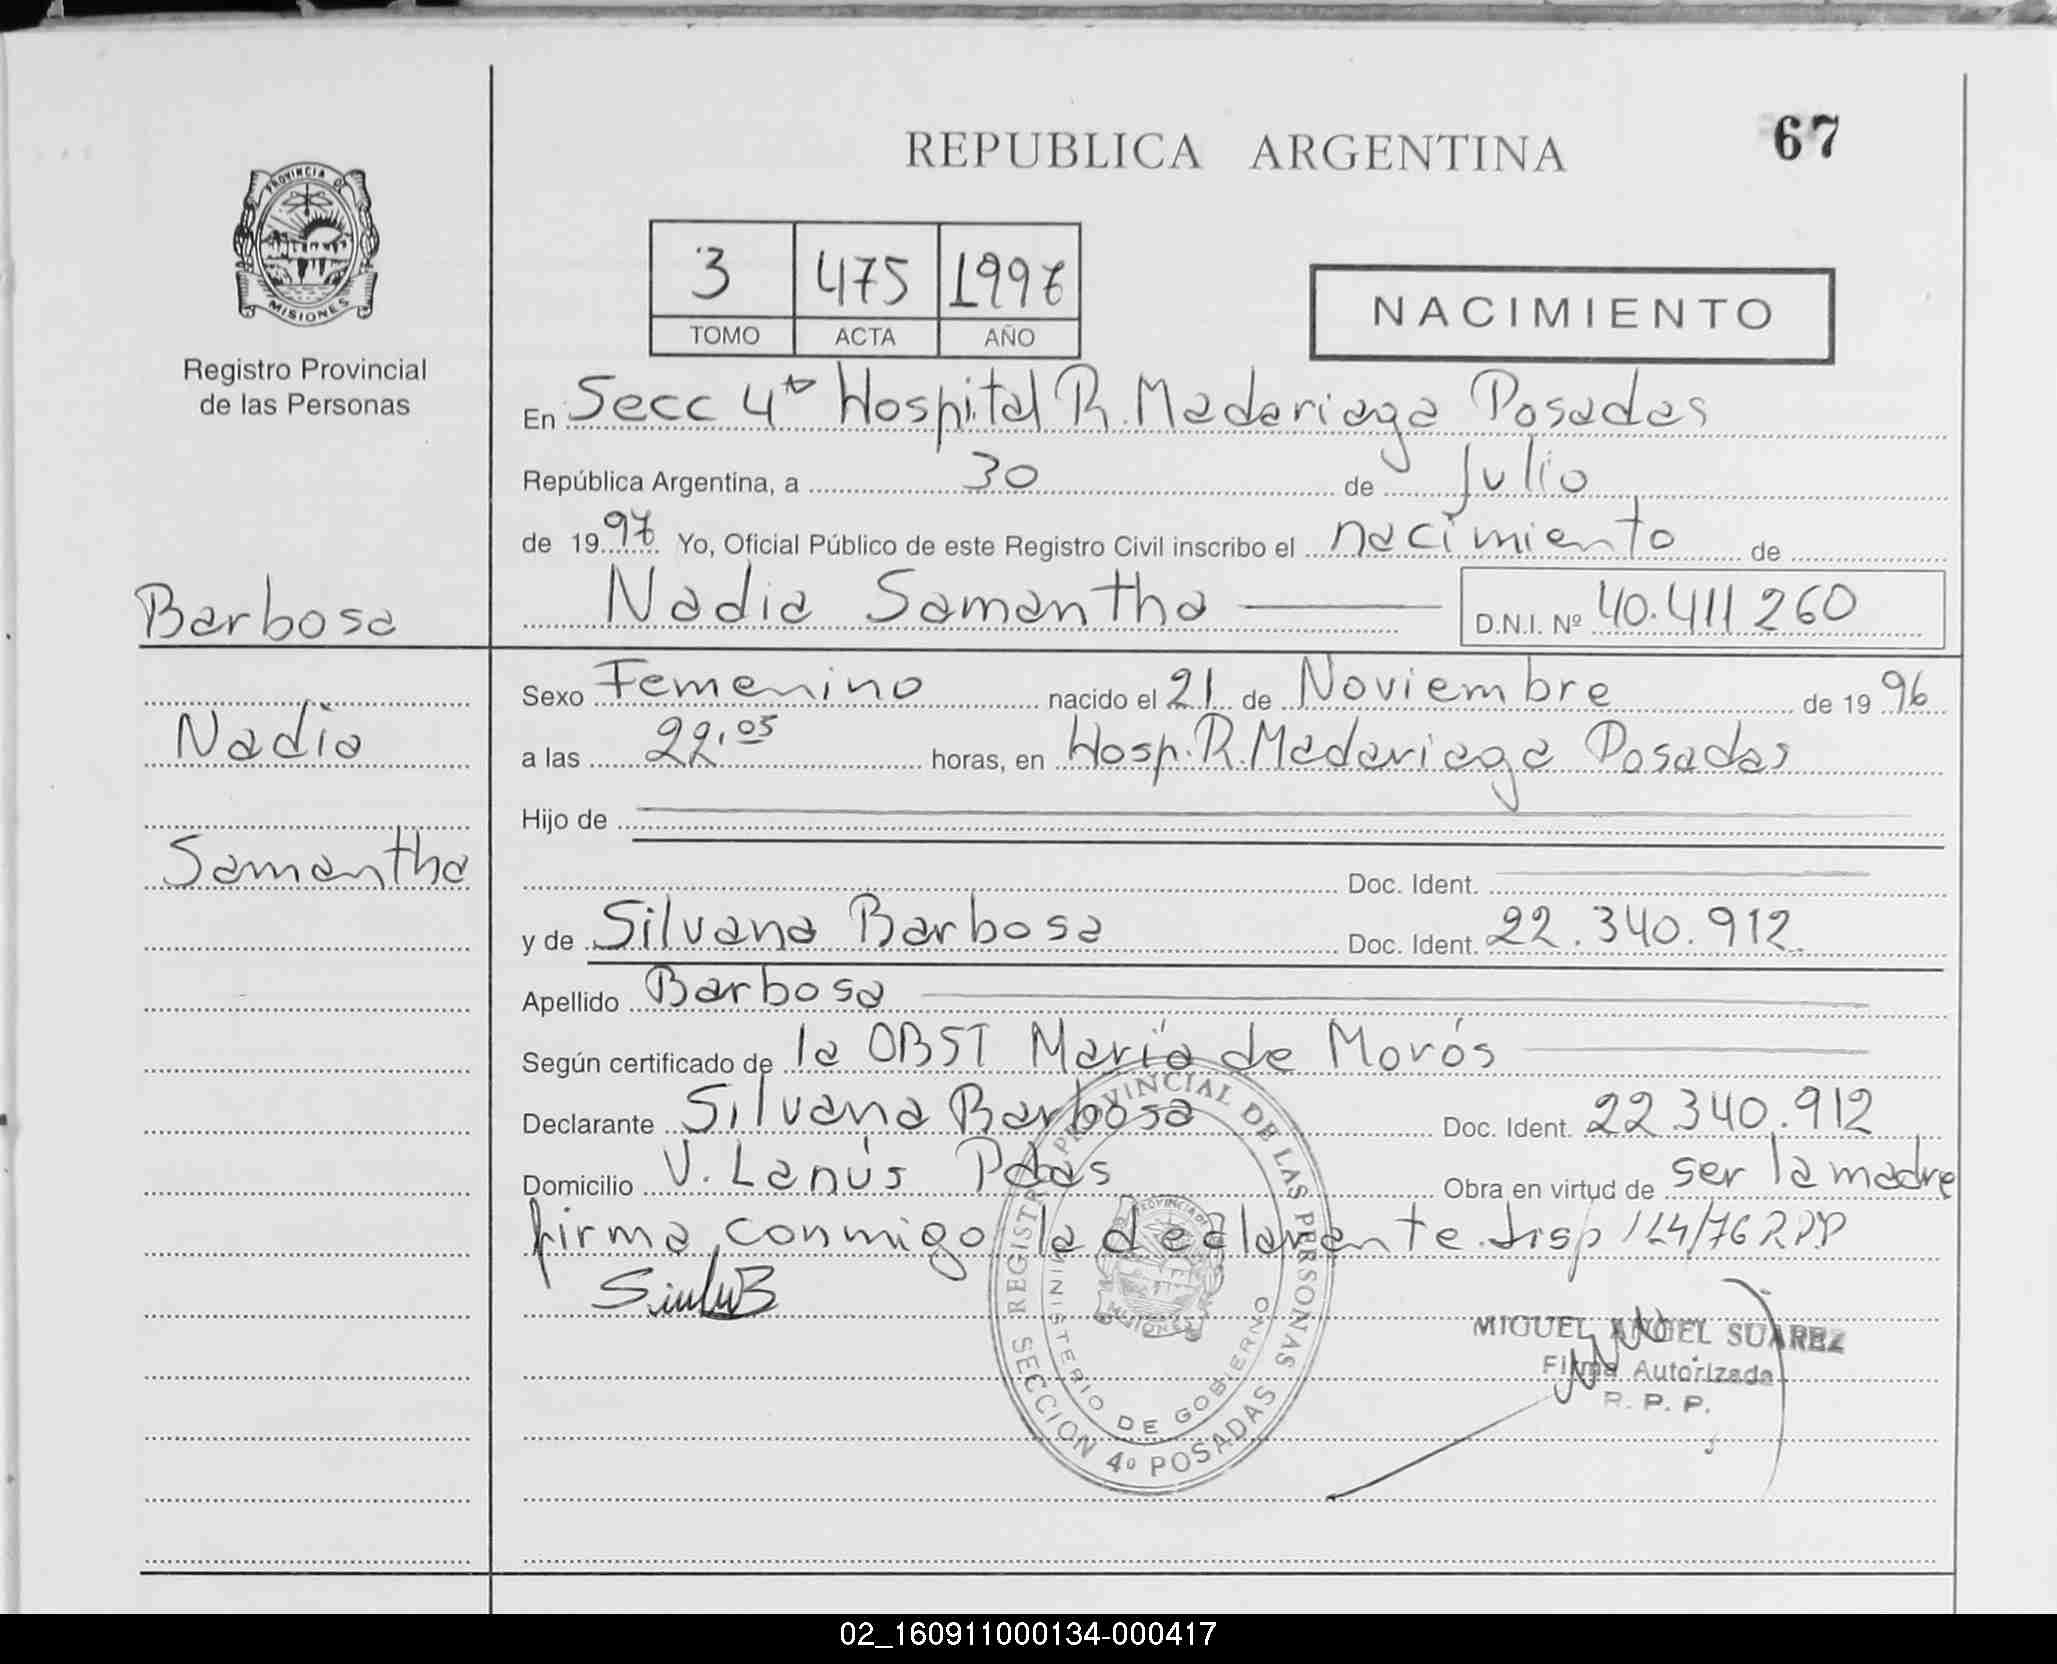 REPUBLICA ARGENTINA
67
PROVINCIA DE
MISIONES
Registro Provincial
de las Personas
3 475 1997
TOMO ACTA AÑO
NACIMIENTO
En Secc 4ta Hospital R. Madariaga Posadas
República Argentina, a 30 de Julio
de 1997 Yo, Oficial Público de este Registro Civil inscribo el nacimiento de
Nadia Samantha D.N.I. Nº 40.411 260
Barbosa
Nadia
Samantha
Sexo Femenino nacido el 21 de Noviembre de 1996
a las 22,05 horas, en Hosp. R. Madariaga Posadas
Hijo de
Doc. Ident.
y de Silvana Barbosa Doc. Ident. 22.340.912.
Apellido Barbosa
Según certificado de la OBST María de Morós
Declarante Silvana Barbosa Doc. Ident. 22 340.912
Domicilio V. Lanús Pdas Obra en virtud de ser la madre
firma conmigo la declarante. disp 114/76 RPP
REGISTRO PROVINCIAL DE LAS PERSONAS
MINISTERIO DE GOBIERNO
SECCION 4º POSADAS
PROVINCIA DE
MISIONES
MIGUEL ANGEL SUAREZ
Firma Autorizada
R. P. P.
02_160911000134-000417